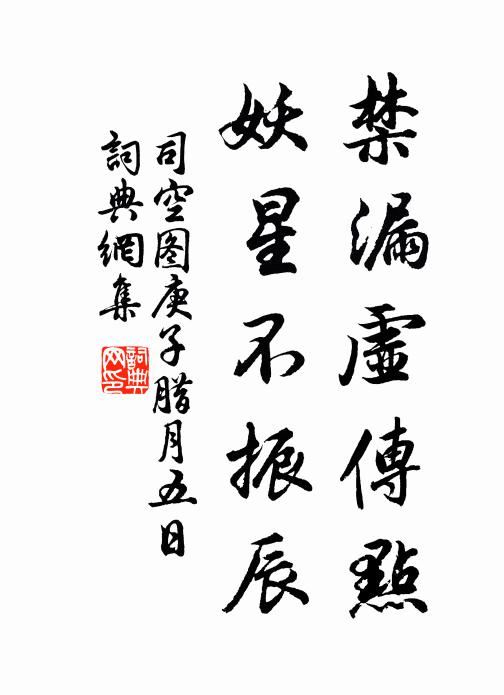 禁漏虛傳點
妖星不振辰
司空图庚子腊月五日
詞典網集
詞典网印